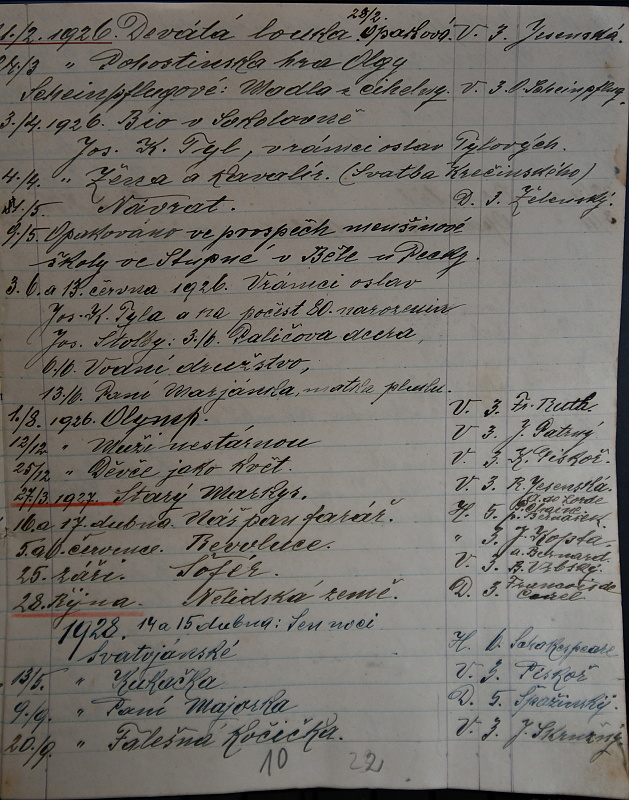 28/2.
1./2. 1926. Devátá louka. Opaková. V. 3. Jesenská.
2/4/3 „ Pohostinská hra Olgy
Scheinpflugové: Madla z cihelny. V. 3. O. Scheinpflug.
3./4. 1926. Bio v Sokolovně
Jos. K. Tyl, v rámci oslav Tylových.
4./4. „ Žena a Kavalír. (Svatba Krečinského)
1./5. Návrat. D. 3. Želenský.
9./5. Opakováno ve prospěch menšinové
školy ve Stupné v Běle u Pecky.
3. 6. a 13. června 1926. V rámci oslav
Jos. K. Tyla a na počest 80. narozenin
Jos. Štolby: 3./6. Paličova dcera,
6./6. Vodní družstvo,
13./6. Paní Marjánka, matka pluku.
1./8. 1926. Olymp. V. 3. Fr. Ruth.
12/12 „ Muži nestárnou V. 3. J. Patrný
25/12 „ Děvče jako květ. V. 3. K. Piskoř.
27/3. 1927. Starý Markys. V. 3. R. Jesenská.
16. a 17. dubna. Náš pan farář. H. 5. A. de Lorde P. Chaine. p. Bernášek
5. a 6. července. Revoluce. „ 3. J. Kopta.
25. září. Šofér. V. 3. a. Bernard. B. Vrbský.
28. Října. Nelidská země. D. 3. Francois de Curel
1928. 14 a 15 dubna: Sen noci
Svatojánské H. 6. Schakespeare
13/5. „ Kukačka V. 3. Piskoř
9./9. „ Paní Majorka D. 5. Špažinský.
20./9. „ Falešná Kočička. V. 3. J. Skružný.
10 22